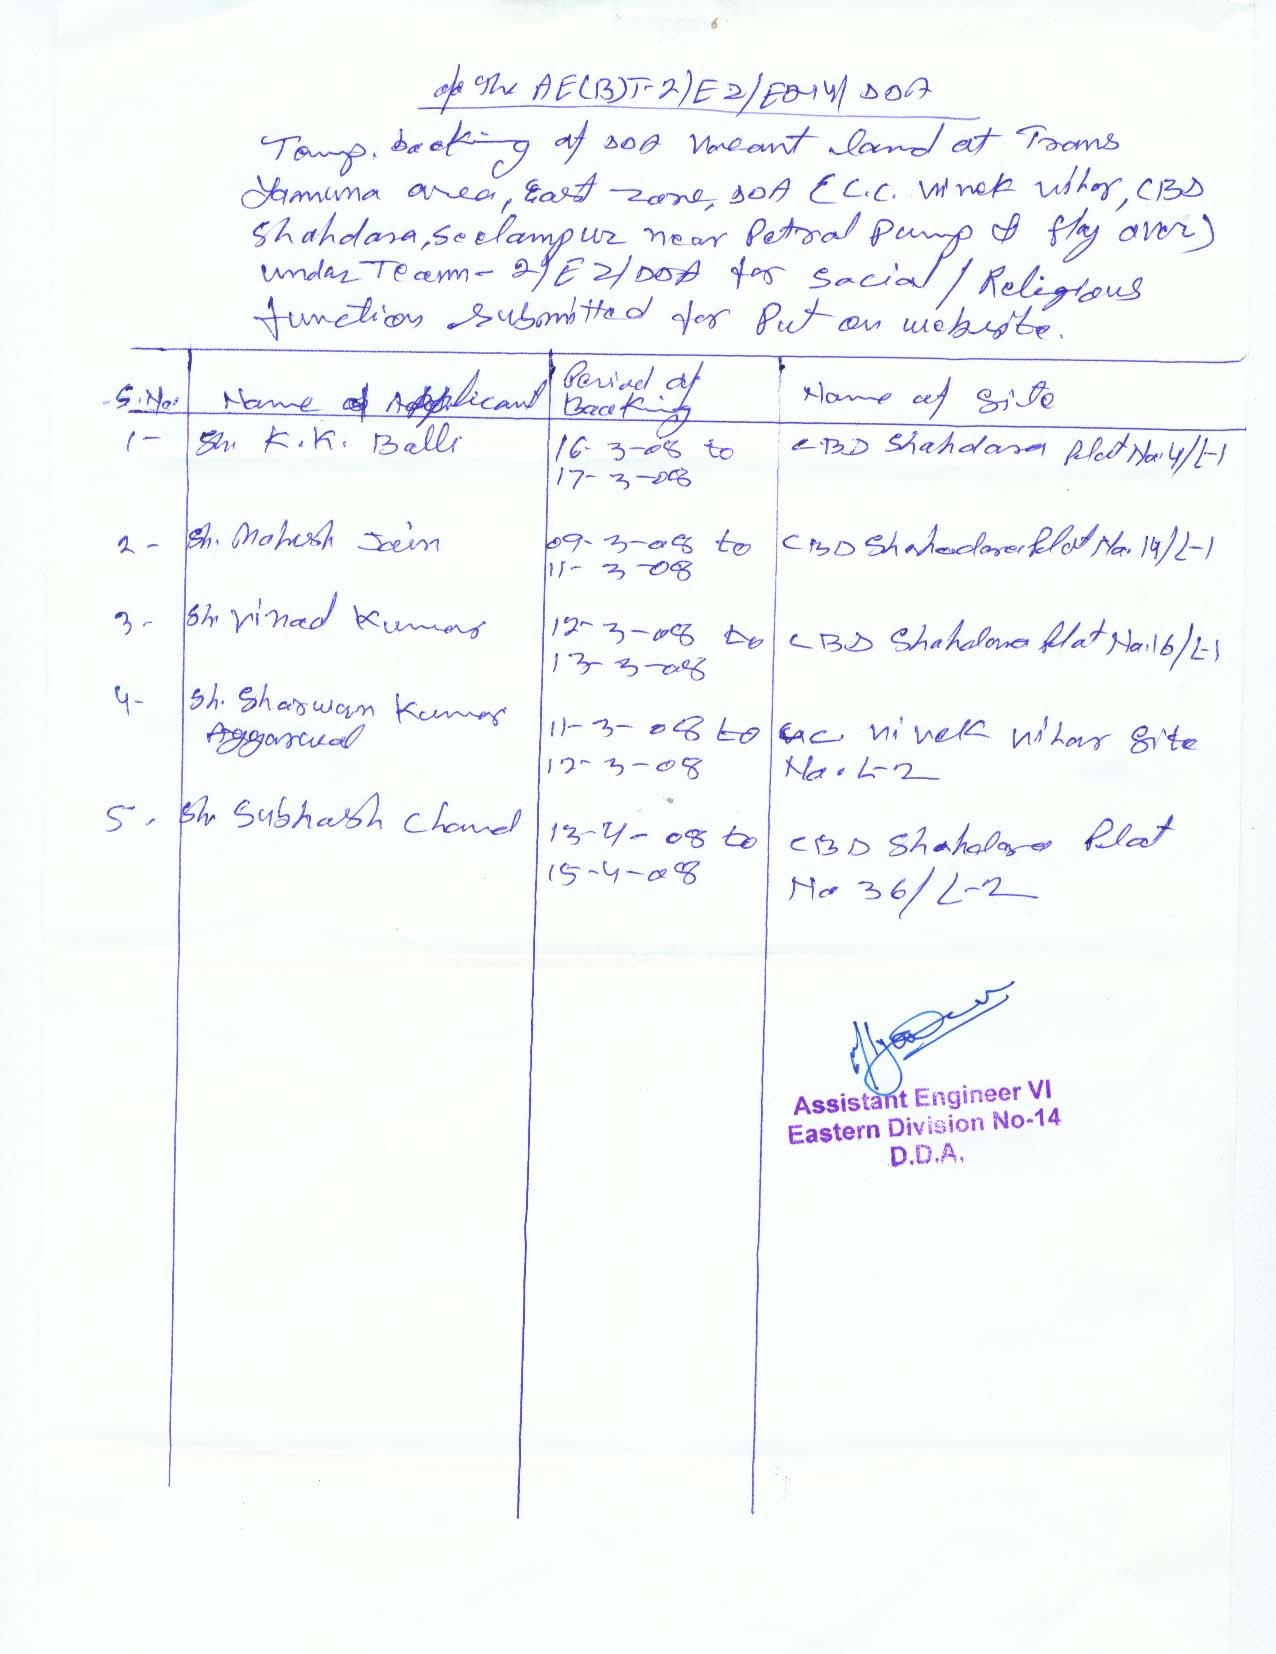 o/o the AE(B)T-2/E2/ED-14/DDA
Temp. booking of DDA Vacant land at Trans
Yamuna area, East zone, DDA (C.C. Vivek Vihar, CBD
Shahdara, Seelampur near Petrol Pump & fly over)
under Team-2/E2/DDA for Social/Religious
function submitted for Put on website.
S.No. Name of Applicant Period of Booking Name of Site
1- Sh. K.K. Balli 16-3-08 to CBD Shahdara Plot No. 4/L-1
17-3-08
2- Sh. Mahesh Jain 09-3-08 to CBD Shahadara Plot No. 14/L-1
11-3-08
3- Sh. Vinod Kumar 12-3-08 to CBD Shahdara Plot No. 16/L-1
13-3-08
4- Sh. Sharwan Kumar 11-3-08 to C.C. Vivek Vihar Site
Aggarwal 12-3-08 No. L-2
5. Sh. Subhash Chand 13-4-08 to CBD Shahdara Plot
15-4-08 No 36/L-2
Assistant Engineer VI
Eastern Division No-14
D.D.A.